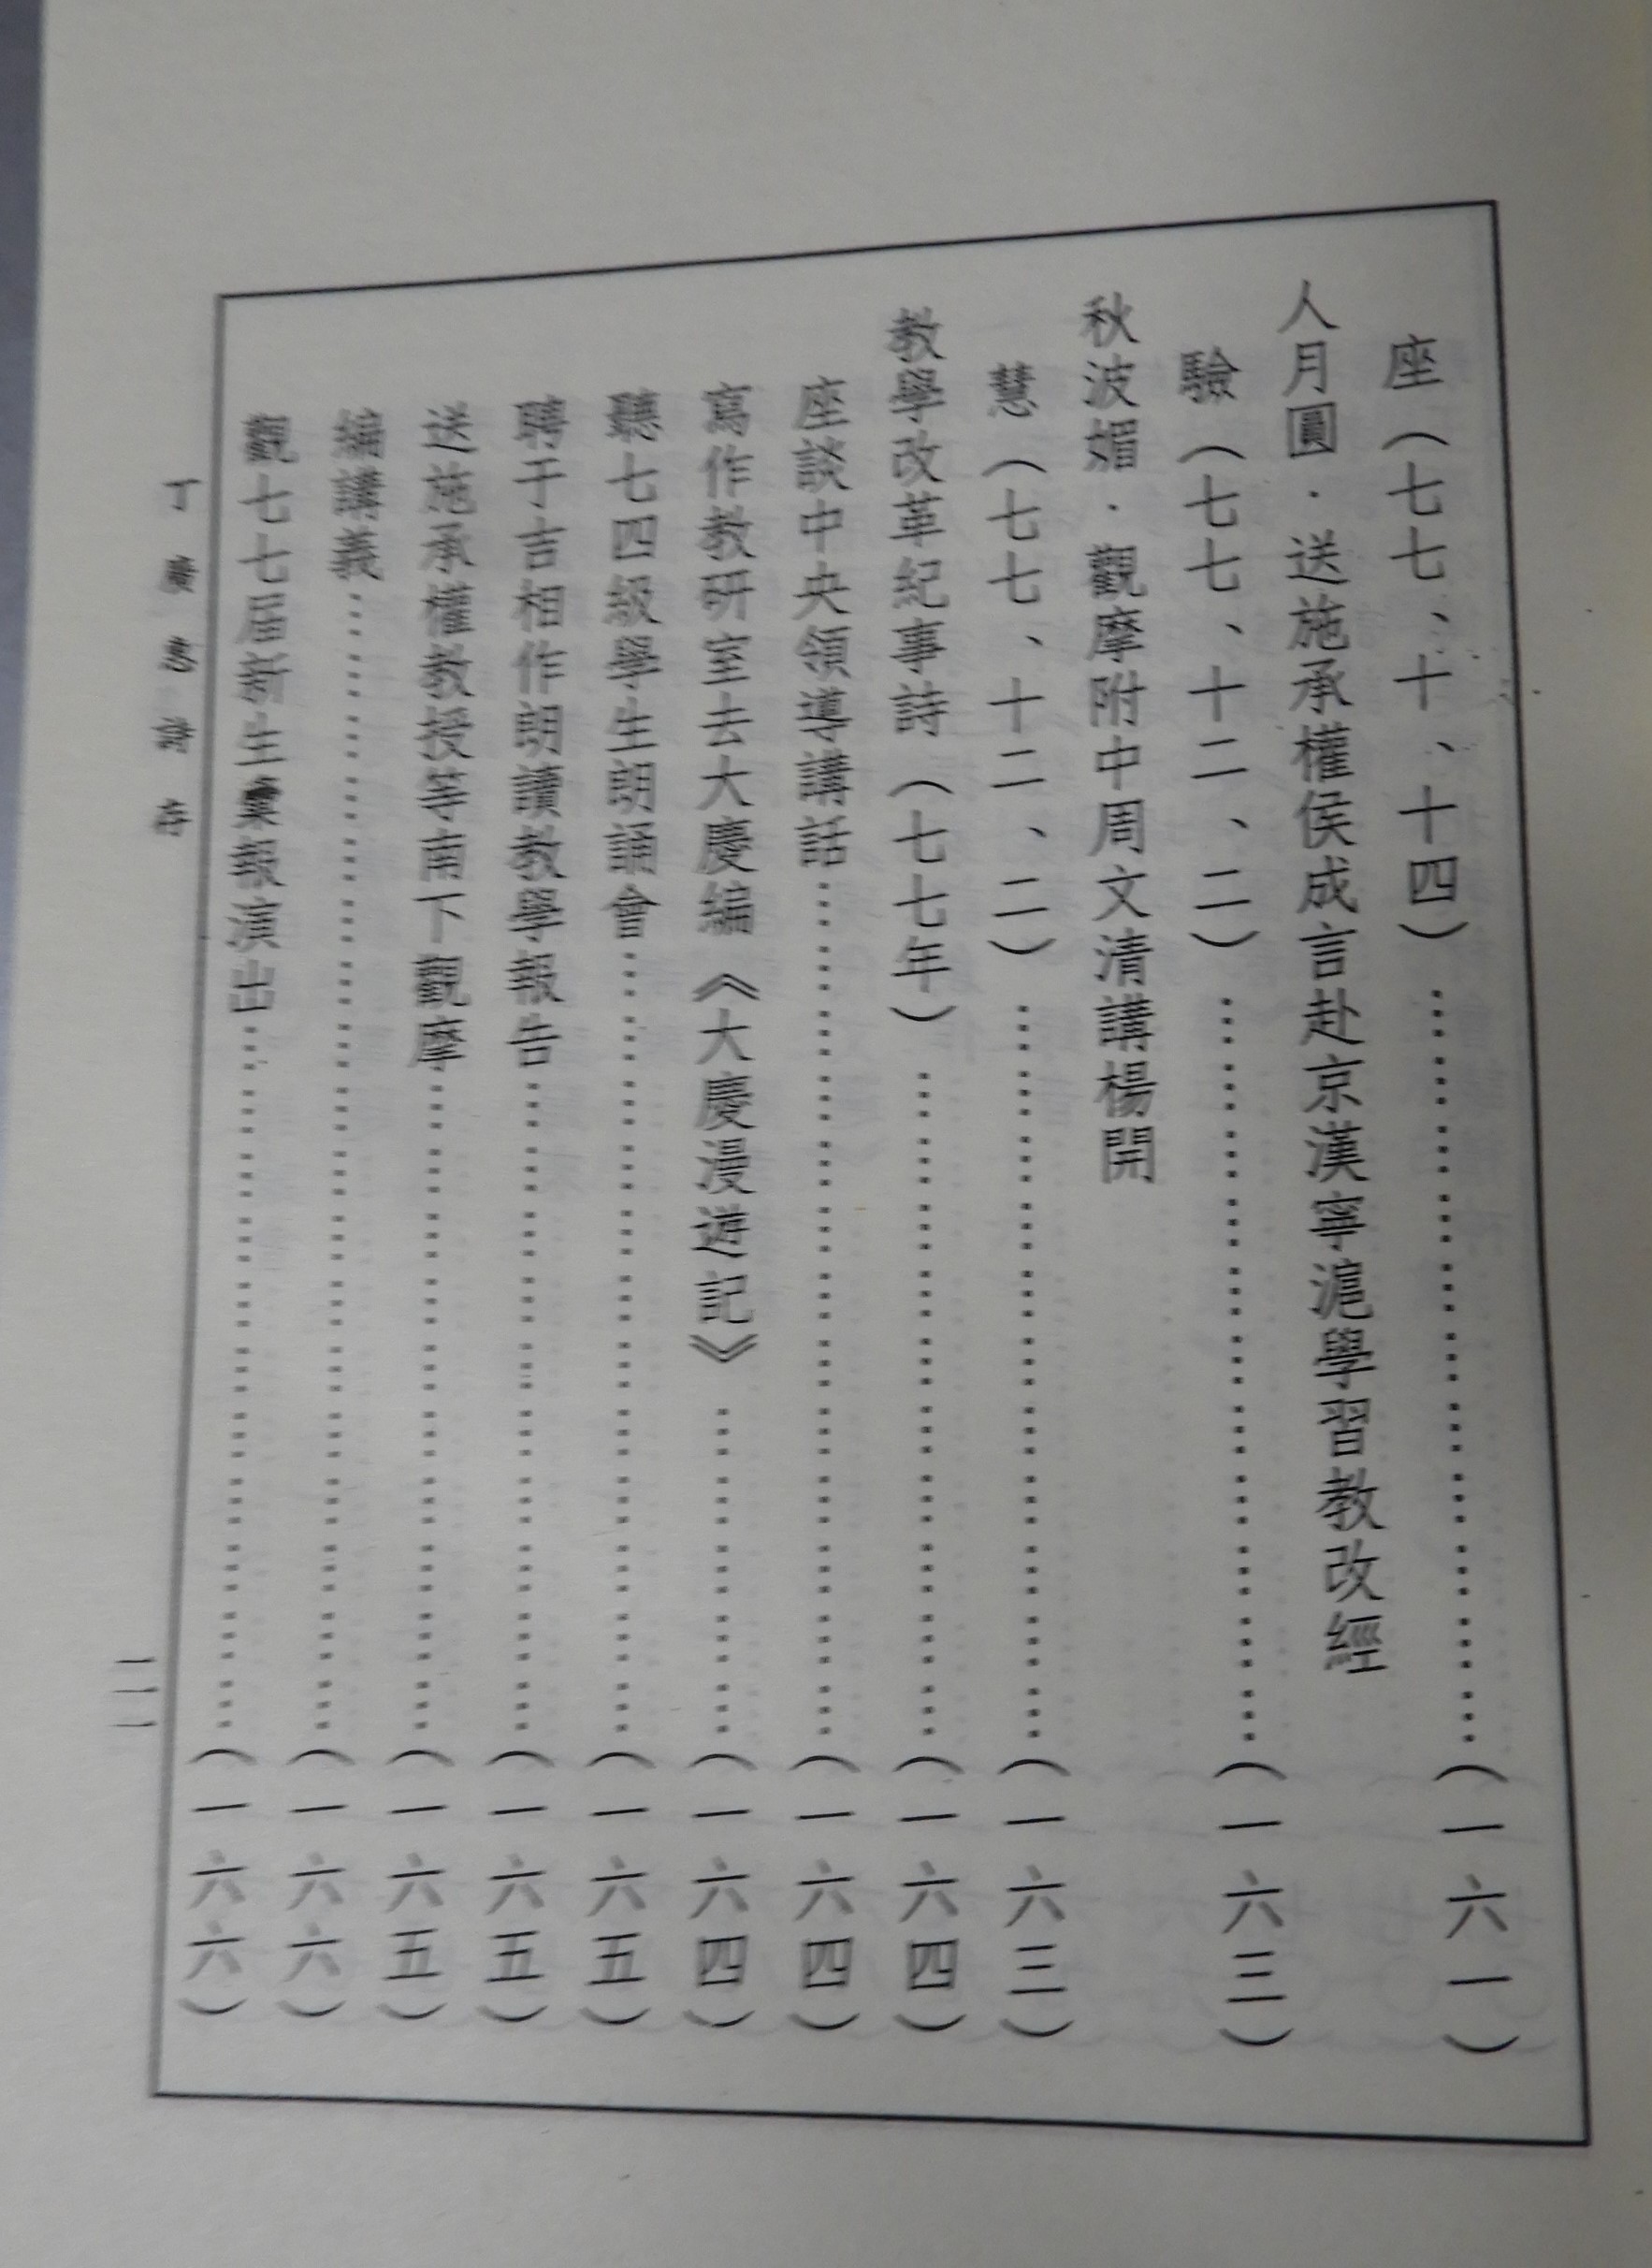 座（七七、十、十四）……………………（一六一）
人月圓·送施承權侯成言赴京漢寧滬學習教改經
驗（七七、十二、二）……………………（一六三）
秋波媚·觀摩附中周文清講楊開
慧（七七、十二、二）……………………（一六三）
教學改革紀事詩（七七年）……………………（一六四）
座談中央領導講話……………………（一六四）
寫作教研室去大慶編《大慶漫遊記》……………………（一六四）
聽七四級學生朗誦會……………………（一六五）
聘于吉相作朗讀教學報告……………………（一六五）
送施承權教授等南下觀摩……………………（一六五）
編講義……………………（一六六）
觀七七届新生彙報演出……………………（一六六）
丁廣惠詩存